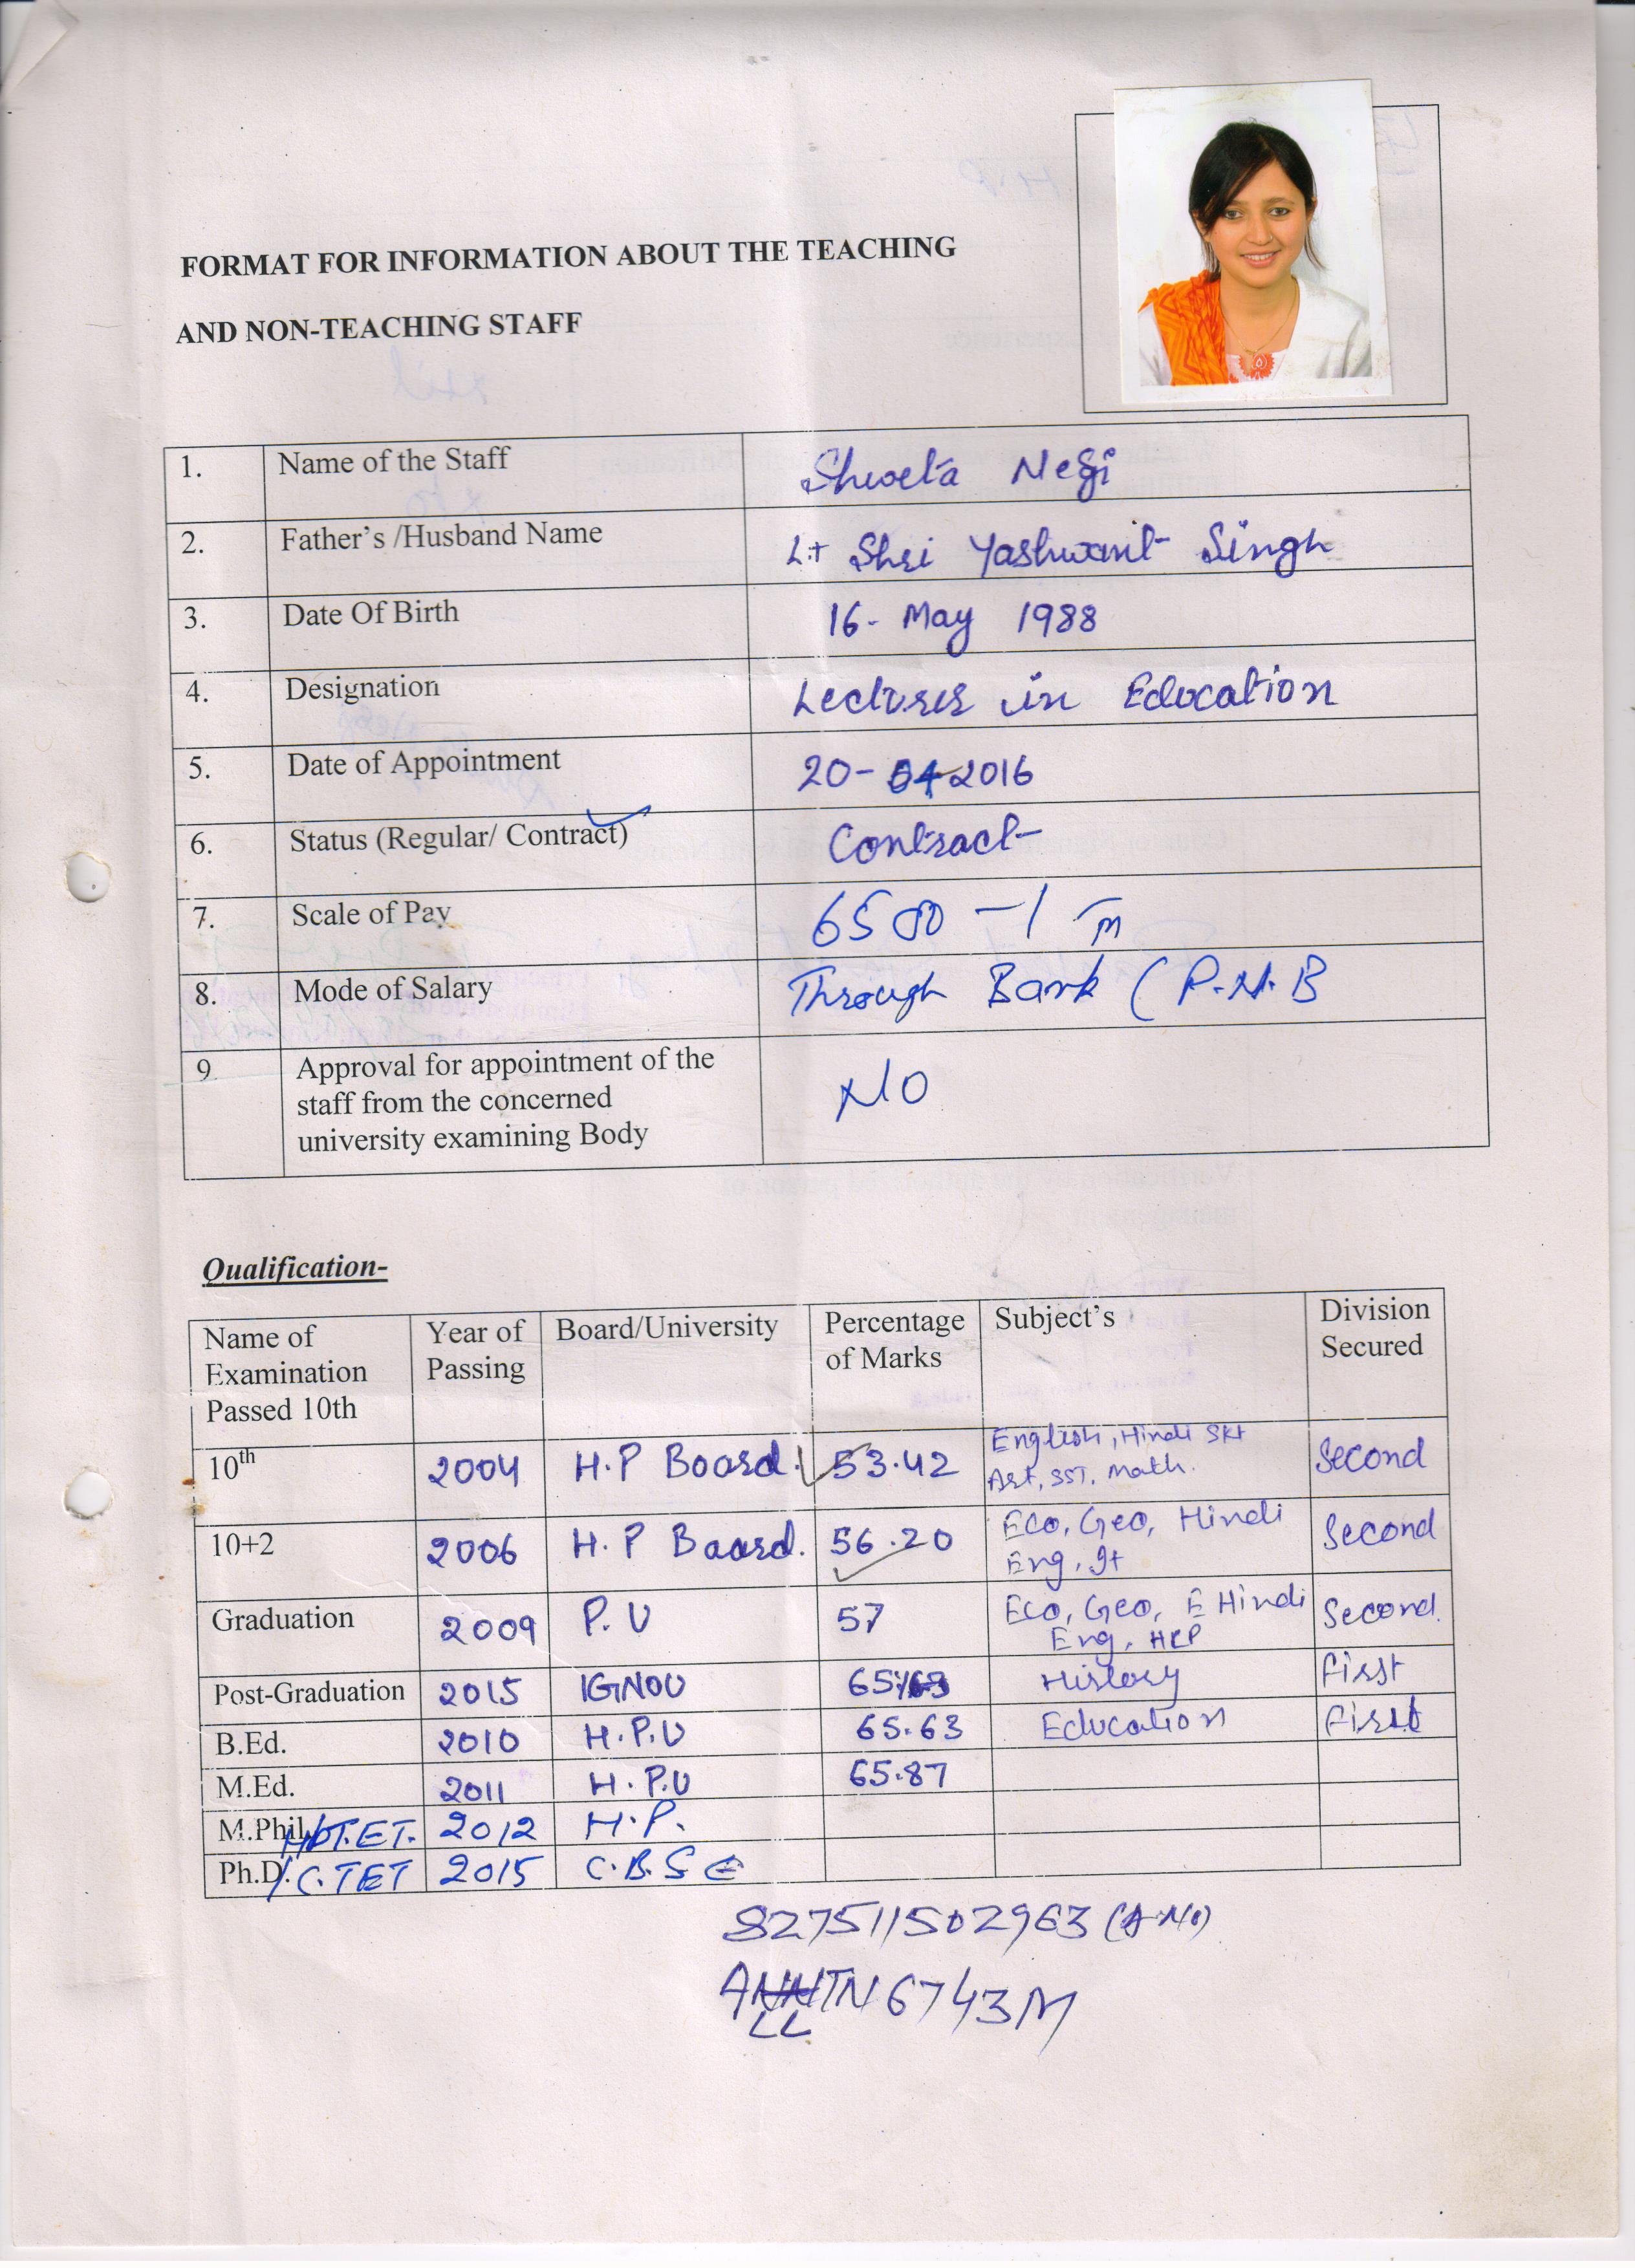 FORMAT FOR INFORMATION ABOUT THE TEACHING
AND NON-TEACHING STAFF
1. Name of the Staff Shweta Negi
2. Father's /Husband Name Lt Shri Yashwant Singh
3. Date Of Birth 16- May 1988
4. Designation Lecturer in Education
5. Date of Appointment 20-04-2016
6. Status (Regular/ Contract) Contract
7. Scale of Pay 6500 -/ m
8. Mode of Salary Through Bank ( P.N.B
9 Approval for appointment of the
staff from the concerned
university examining Body NO
Qualification-
Name of Examination Passed 10th Year of Passing Board/University Percentage of Marks Subject's Division Secured
10th 2004 H.P Board. 53.42 English, Hindi Skt Art, SST, Math. Second
10+2 2006 H.P Board. 56.20 Eco, Geo, Hindi Eng, It Second
Graduation 2009 P.U 57 Eco, Geo, E Hindi Eng, HCP Second.
Post-Graduation 2015 IGNOU History First
B.Ed. 2010 H.P.U 65.63 Education First
M.Ed. 2011 H.P.U 65.87
M.Phil T.ET. 2012 H.P.
Ph.D. / C.TET 2015 C.B.S E
827511502963 (A No)